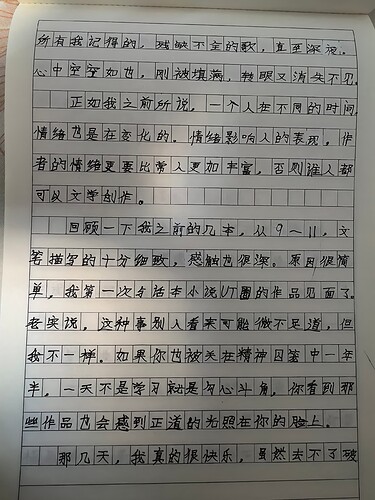 所有我记得的，残缺不全的歌，直至深夜。
心中空空如也，刚被填满，转眼又消失不见。
正如我之前所说，一个人在不同的时间，
情绪也是在变化的。情绪影响人的表现，作
者的情绪更要比常人更加丰富，否则谁人都
可以文学创作。
回顾一下我之前的几本，从9～11，文
笔描写的十分细致，感触也很深。原因很简
单，我第一次与话本小说UT圈的作品见面了。
老实说，这种事别人看来可能微不足道，但
我不一样。如果你也被关在精神囚笼中一年
半，一天不是学习就是勾心斗角，你看到那
些作品也会感到正道的光照在你的脸上。
那几天，我真的很快乐，虽然去不了破